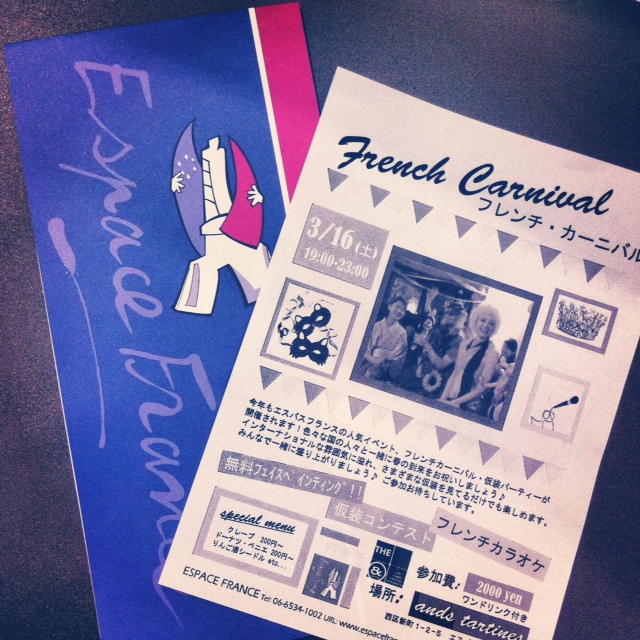 Espace France
French Carnival
フレンチ・カーニバル
3/16(土)
19:00-23:00
今年もエスパスフランスの人気イベント、フレンチカーニバル・仮装パーティーが
開催されます！色々な国の人々と一緒に春の到来をお祝いしましょう♪
インターナショナルな雰囲気に溢れ、さまざまな仮装を見てるだけでも楽しめます。
みんなで一緒に盛り上がりましょう♪ ご参加お待ちしています。
無料フェイスペインティング!!
仮装コンテスト
フレンチカラオケ
special menu
クレープ 200円~
ドーナツ・ベニエ 200円~
りんご酒シードル etc...
THE
&
参加費:
2000 yen
ワンドリンク付き
場所:
ands tartines
西区新町 1-2-5
ESPACE FRANCE Tel: 06-6534-1002 URL: www.espacefra